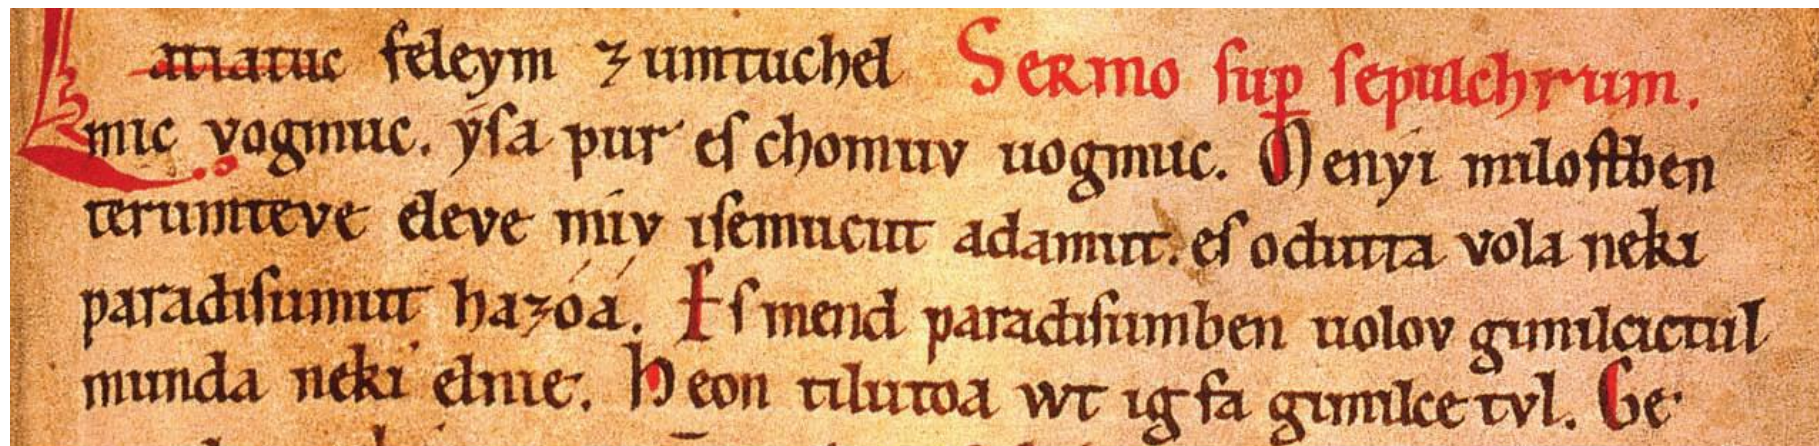 Latiatuc feleym zumtuchel Sermo sup sepulchrum.
mic vogmuc. ysa pur es chomuv uogmuc. Menyi milostben
terumteve eleve miv isemucut adamut. es odutta vola neki
paradisumut hazóá. Es mend paradisumben uolov gimilcictul
munda neki elnie. Heon tilutoa wt igfa gimilcetvl. Ge